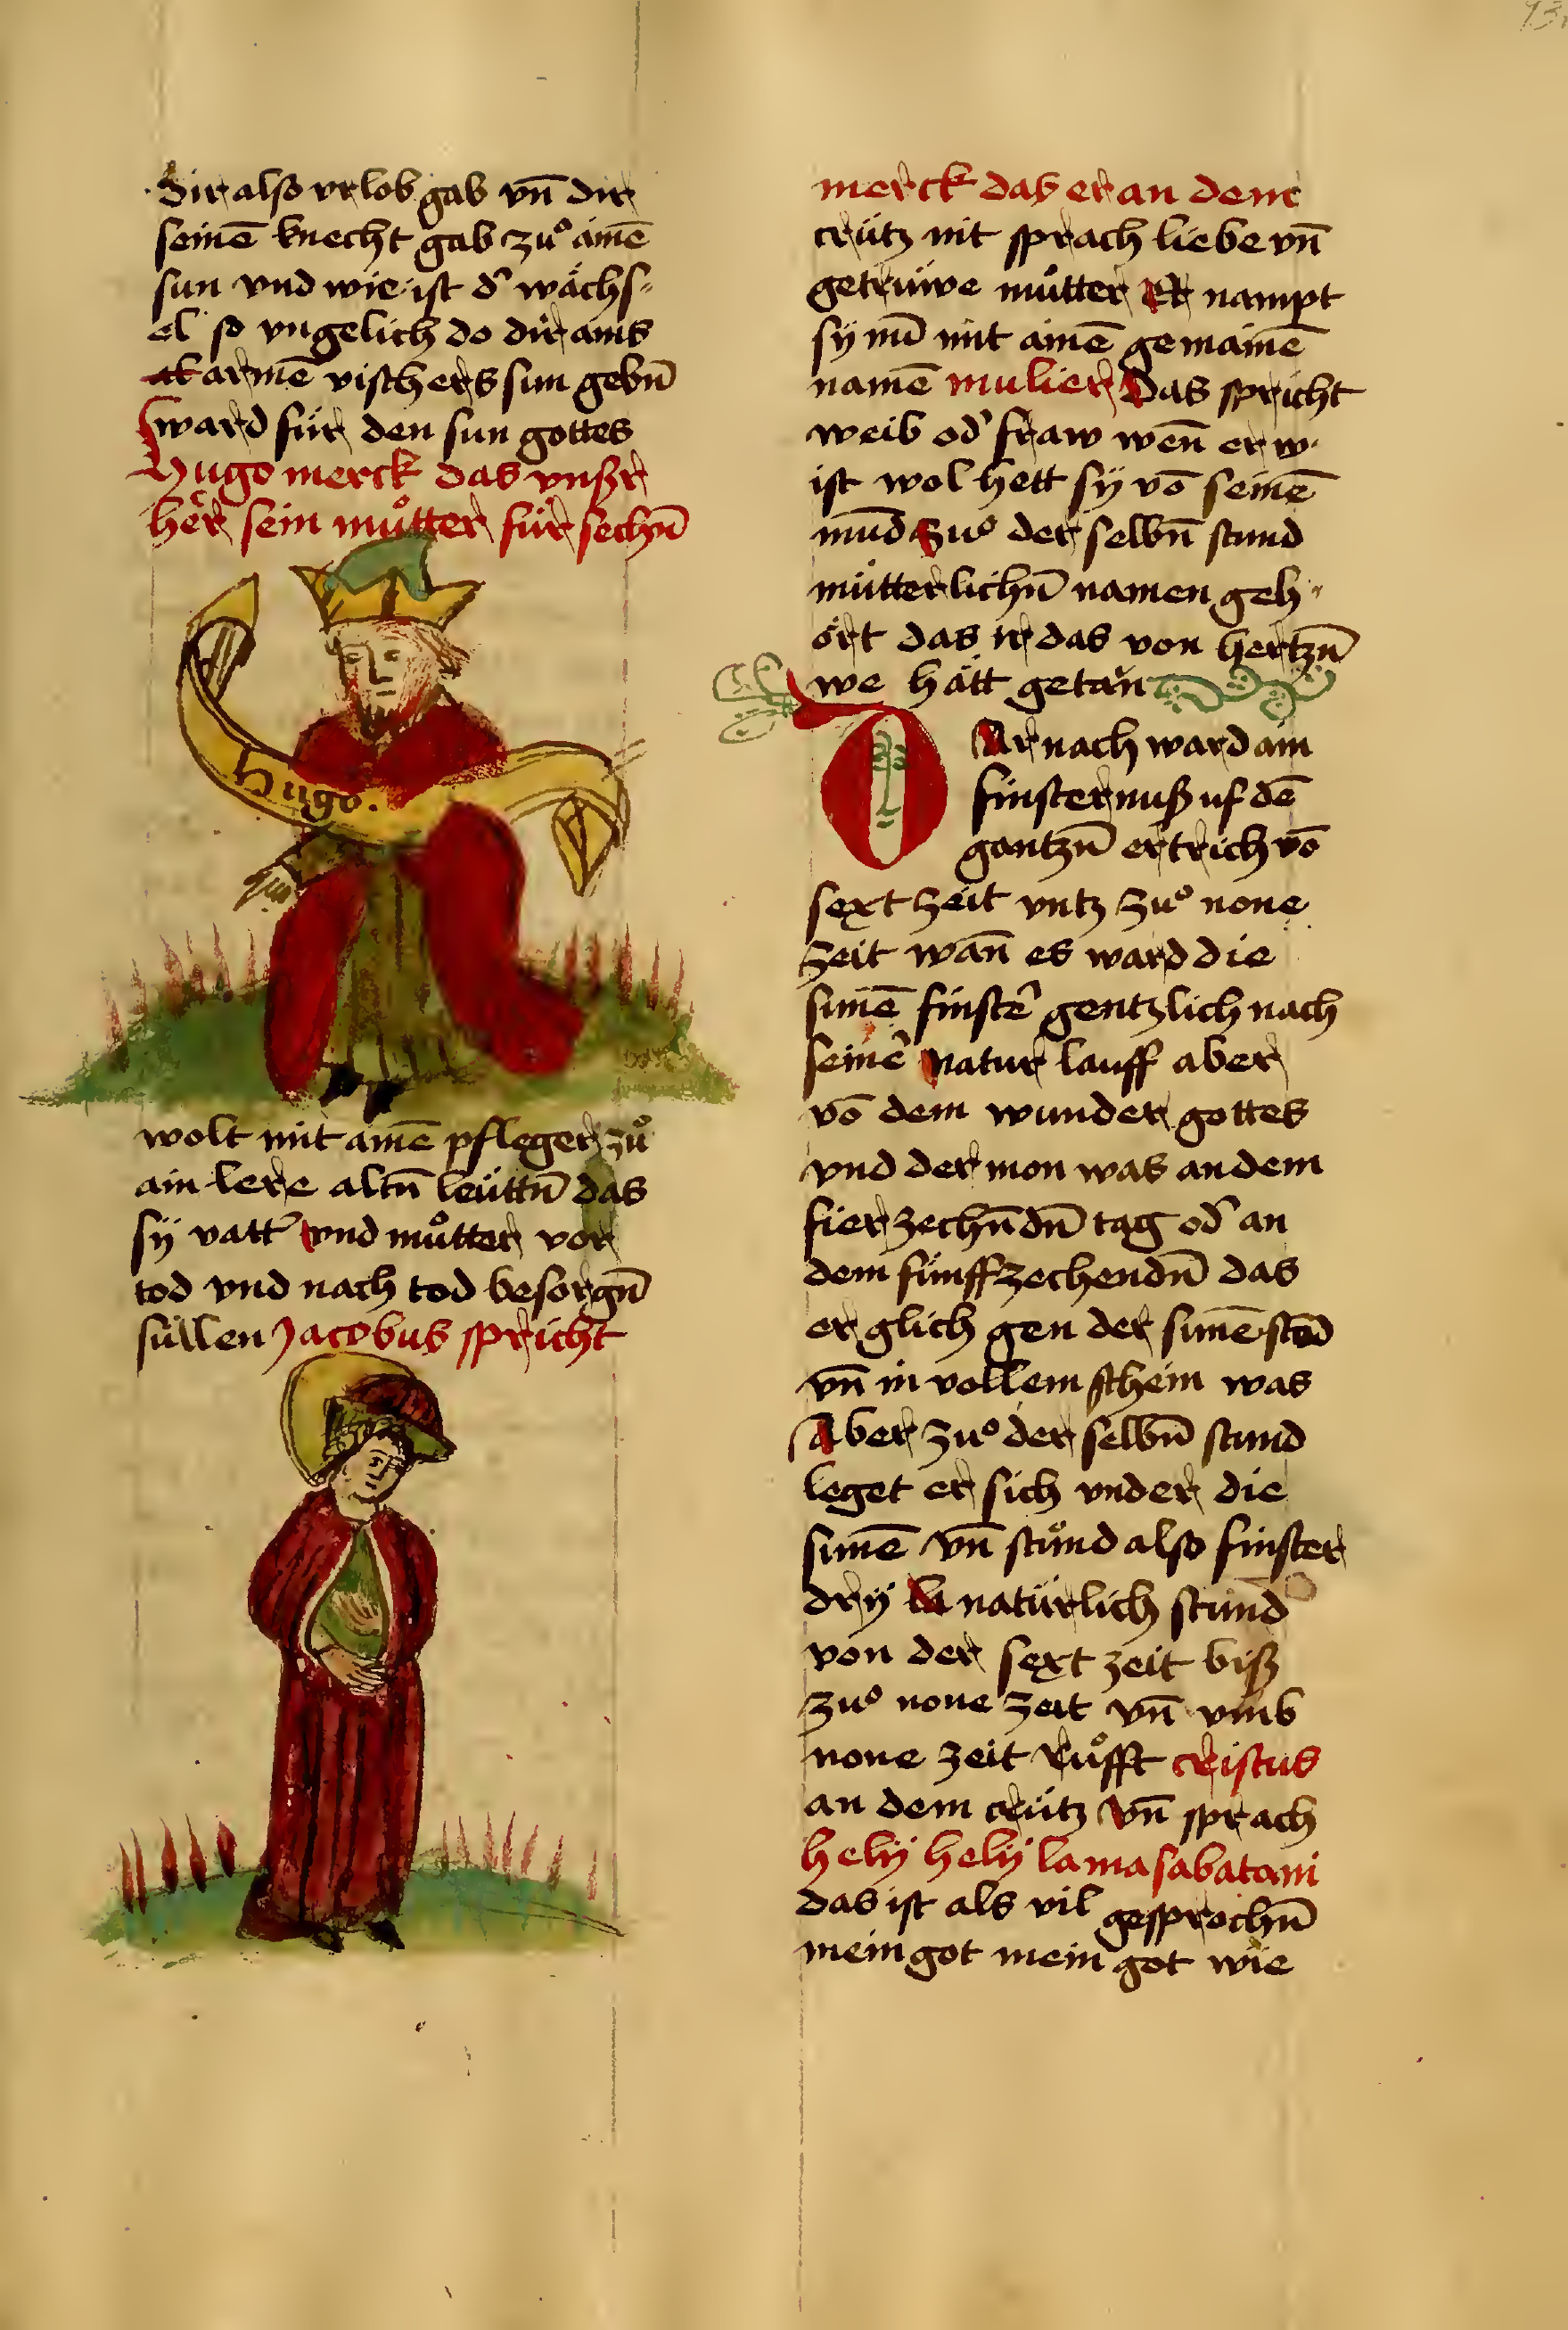 Dir also vrlob gab vn̄ dir
seinē knecht gab zuͦ aīnē
sun vnd wie ist d̕ wächs⸗
el so vngelich do dir ains
armē vischers sun gebn̄
ward für den sun gottes
Hugo merck das vnßr
her sein muͦtter für sechn̄
Hugo.
wolt mit ainē pfleger zuͦ
ain lere altn̄ leüttn̄ das
sÿ vatt̕ vnd muͦtter vor
tod vnd nach tod besorgn̄
süllen Jacobus spricht
merck das er an dem
crütz nit sprach liebe vn̄
getrüwe muͦtter Er nampt
sÿ nū mit ainē gemainē
namē mulier Das spricht
weib od̕ fraw wen̄ er w
ist wol hett sÿ vō seinē
mūd zuͦ der selbn̄ stund
mütterlichn̄ namen geh⸗
ört das ir das von hertzn̄
we hätt getan
DAr nach ward ain
finsternuß uf dē
gantzn̄ ertrich vō
sext zeit vntz zuͦ none
zeit wan̄ es ward die
sunē finst̕ gentzlich nach
sein̕ natur lauff aber
vō dem wunder gottes
vnd der mon was an dem
fierzechn̄dn̄ tag od̕ an
dem fünffzechendn̄ das
er glich gen der sunē stōd
vn̄ in vollem schein was
Aber zuͦ der selbn̄ stund
leget er sich vnder die
sunē vn̄ stuͦnd also finster
drÿ natürlich stund
von der sext zeit biß
zuͦ none zeit vn̄ vmb
none zeit ruͦfft cristus
an dem crütz vn̄ sprach
helÿ helÿ lama sabatani
das ist als vil gesprochn̄
mein got mein got wie